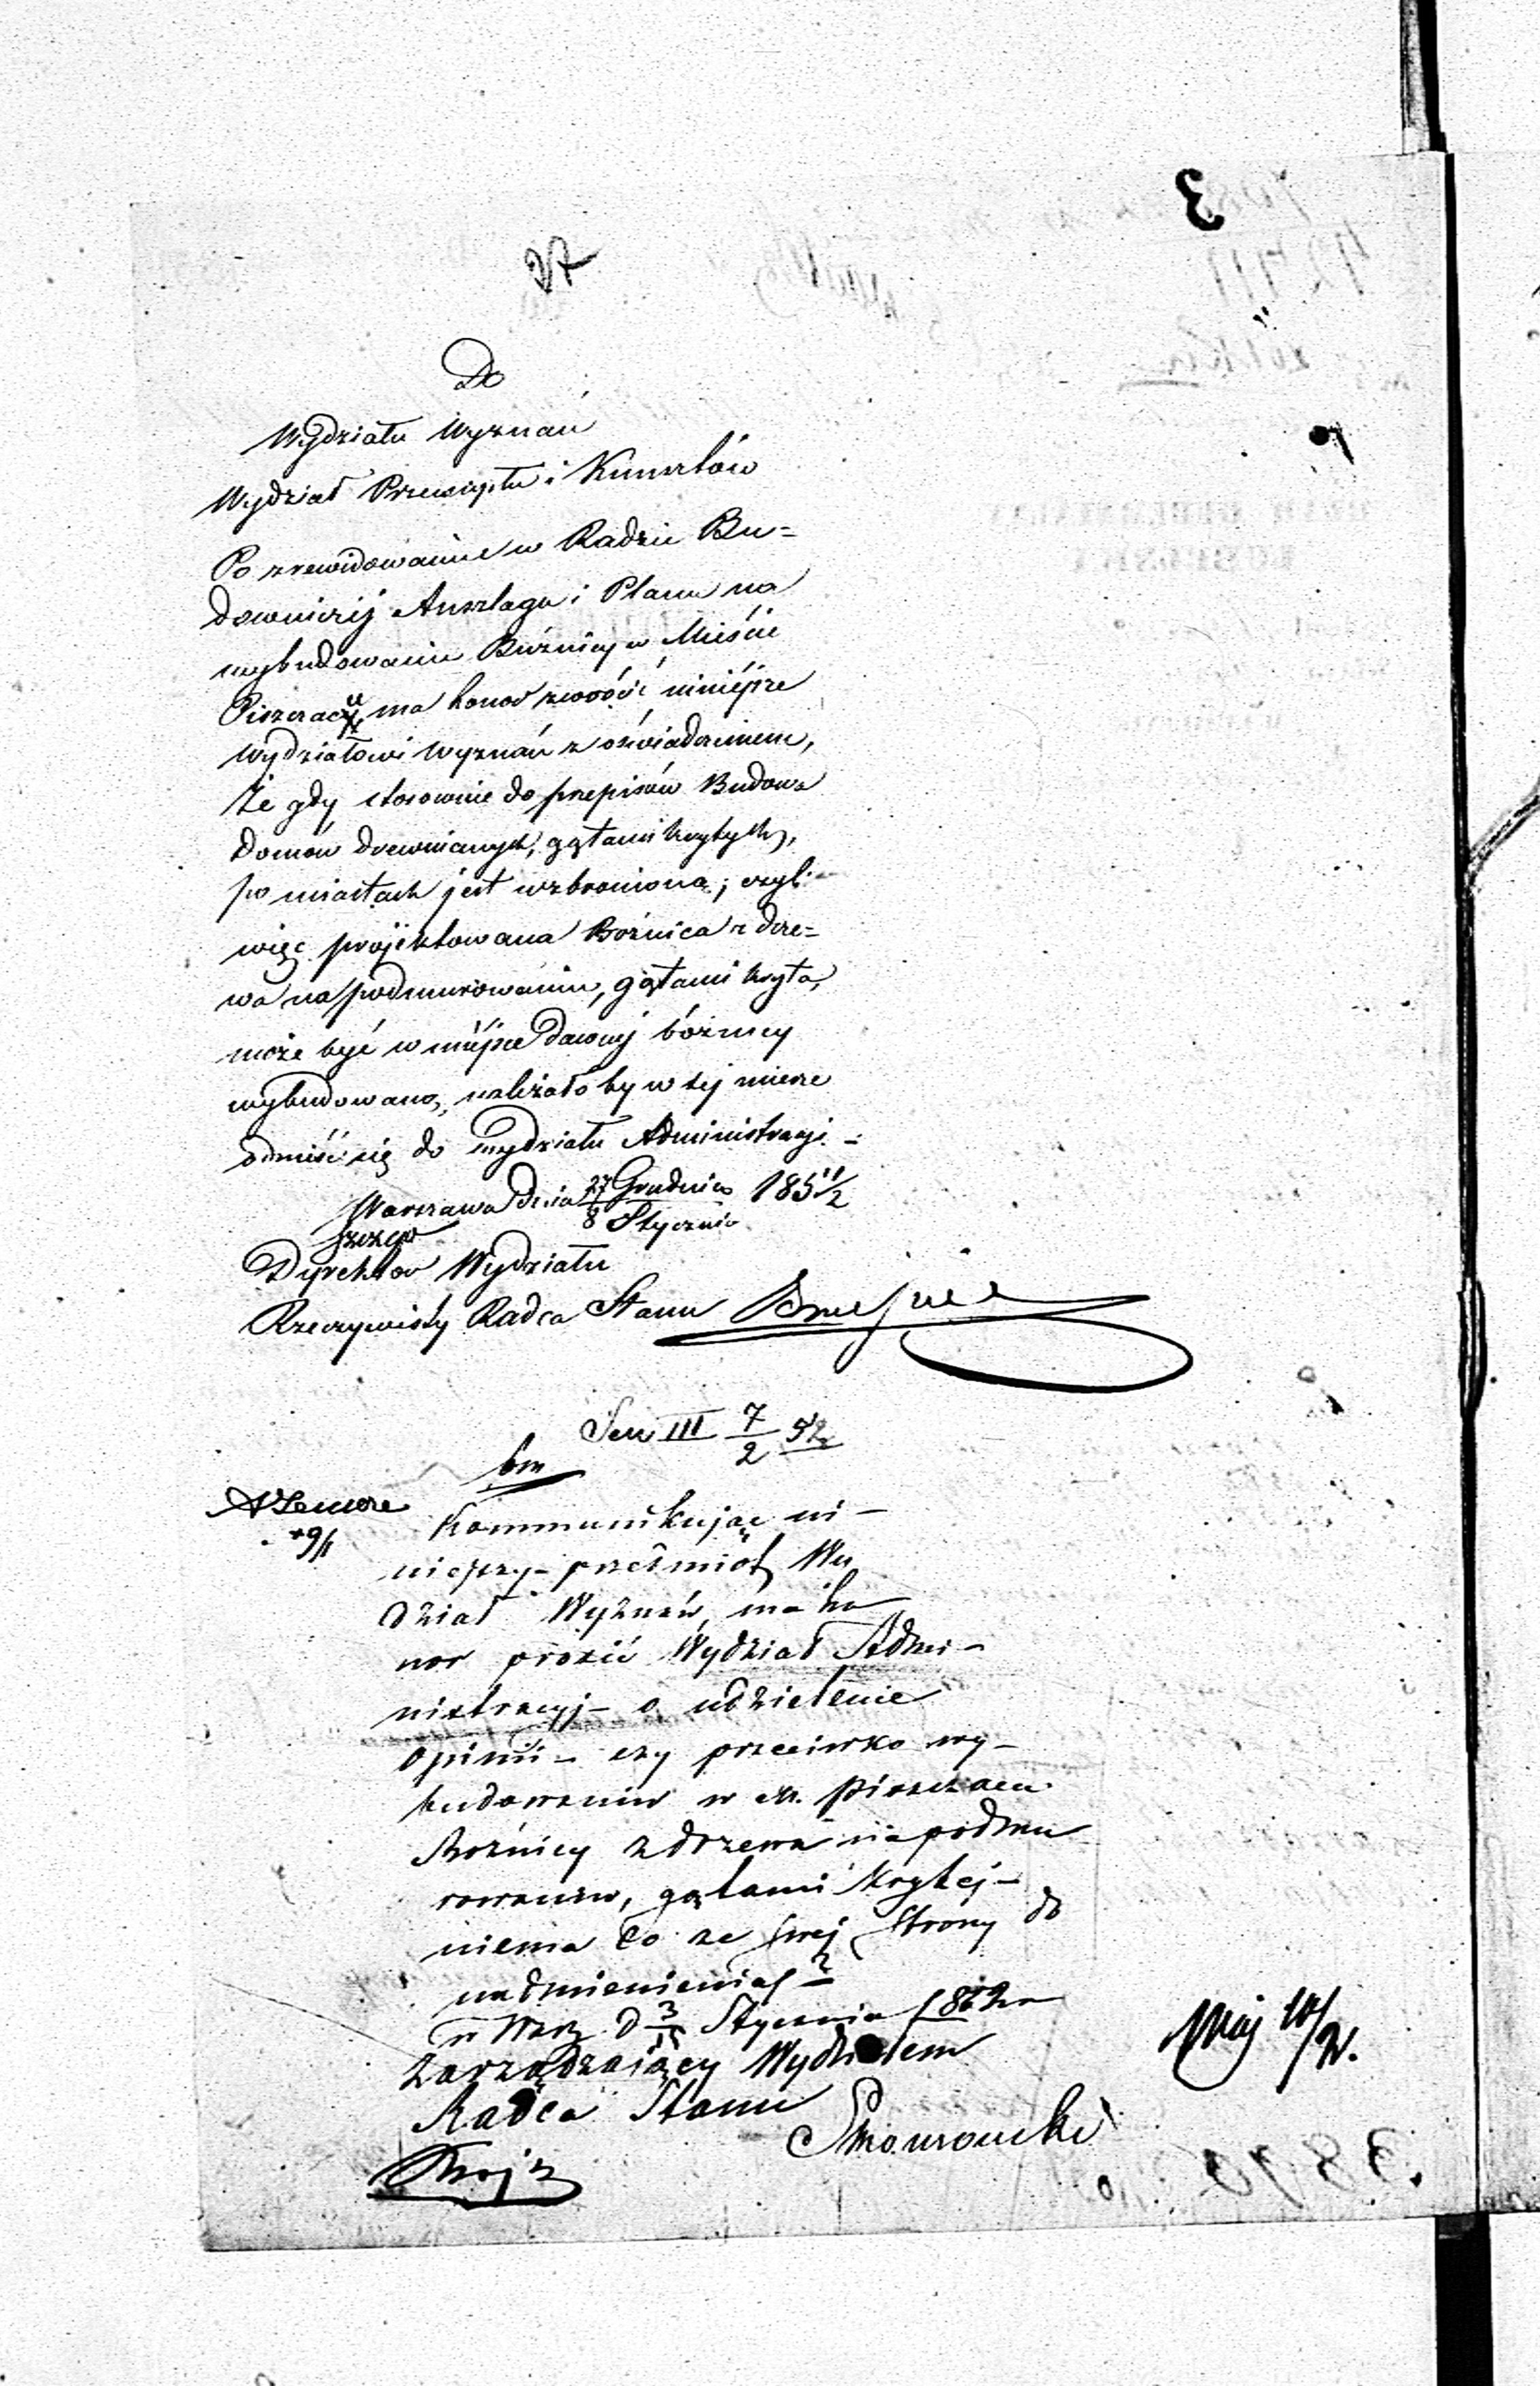 3
27
Do
Wydziału Wyznań
Wydział Przemysłu i Kunsztów
Po zrewidowaniu w Radzie Bu=
downiczéj Anszlagu i Planu na
wybudowanie Bóżnicy w Mieście
Piszczacu, ma honor zwrócić niniéjsze
Wydziałowi Wyznań z oświadczeniem,
Że gdy stosownie do przepisów Budowa
domów drewnianych, gątami krytych,
po miastach jest wzbroniona; czyli
więc projektowana Bóżnica z drze=
wa na podmurowaniu, gątami kryta,
może być w miéjsce dawnéj bóżnicy
wybudowana, należało by w téj mierze
odnieść się do Wydziału Administracyi. –
Warszawa dnia 27 Grudnia / 8 Stycznia 185 1/2
Dyrektor Wydziału
Rzeczywisty Radca Stanu
III 7/2 52
bm
9/1
Kommunikując ni–
niejszy– przedmiot, Wy
dział Wyznań, ma ho
nor prosić Wydział Admi–
nistracyj– o udzielenie
opinii– czy przeciwko wy–
budowaniu w m. Piszczacu
Bożnicy z drzewa na podmu
rowaniu, gątami krytej–
niema co ze swej strony do
nadmienienia? –
w Warz. d 3/15 Stycznia 1852 r
Zarządzaiący Wydziałem
Radca Stanu